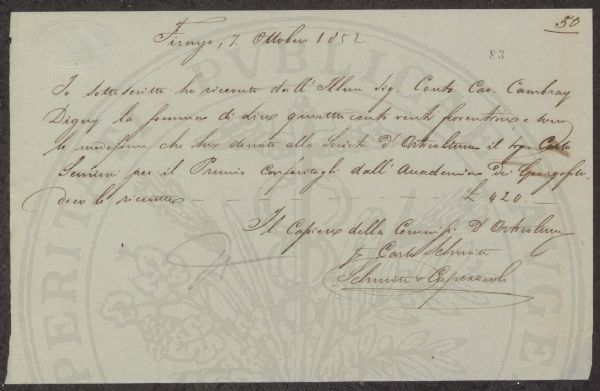 50
Firenze, 7. Ottobre 1852
83
Io sottoscritto ho ricevuto dall' Illmo Sig. Conte Cav. Cambray
Digny la somma di Lire quattro cento venti fiorentine e sono
le medesime che ha donate alla Società d' Orticultura il Sig. Carlo
per il Premio conferitogli dall' Accademia dei Georgofili
dico lo ricevuto £ 420.
Il Cassiere della Commiss. d' Orticultura
Carlo Schmitz
Schmitz &
PUBLICAE
PERITATI